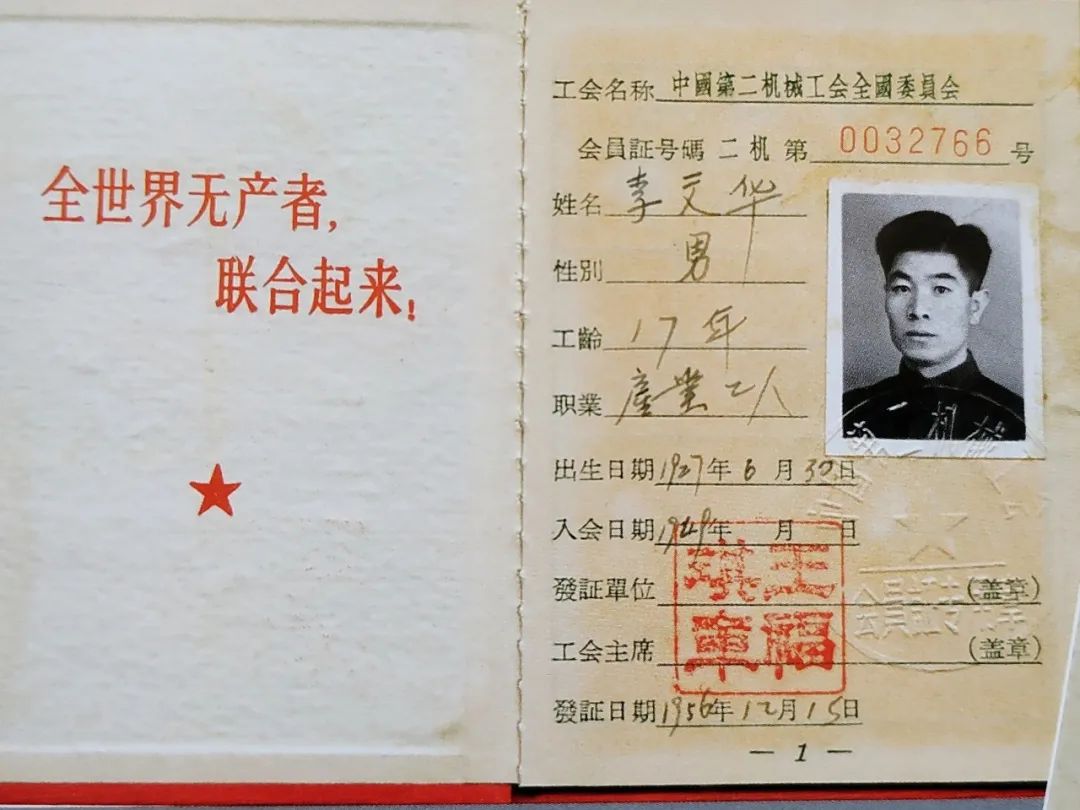 全世界无产者,
联合起来!
★
工会名称 中國第二机械工会全國委員会
会員証号碼 二机 第 0032766 号
姓名 李文华
性别 男
工齡 17年
职業 產業工人
出生日期 1927年6月30日
入会日期 1949年 月 日
發証單位 (盖章)
工会主席 (盖章)
王福
車
發証日期 1956年12月15日
— 1 —